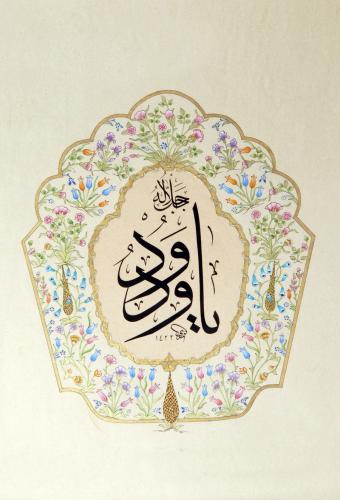 جلاله
يا ودود
١٤٢٢